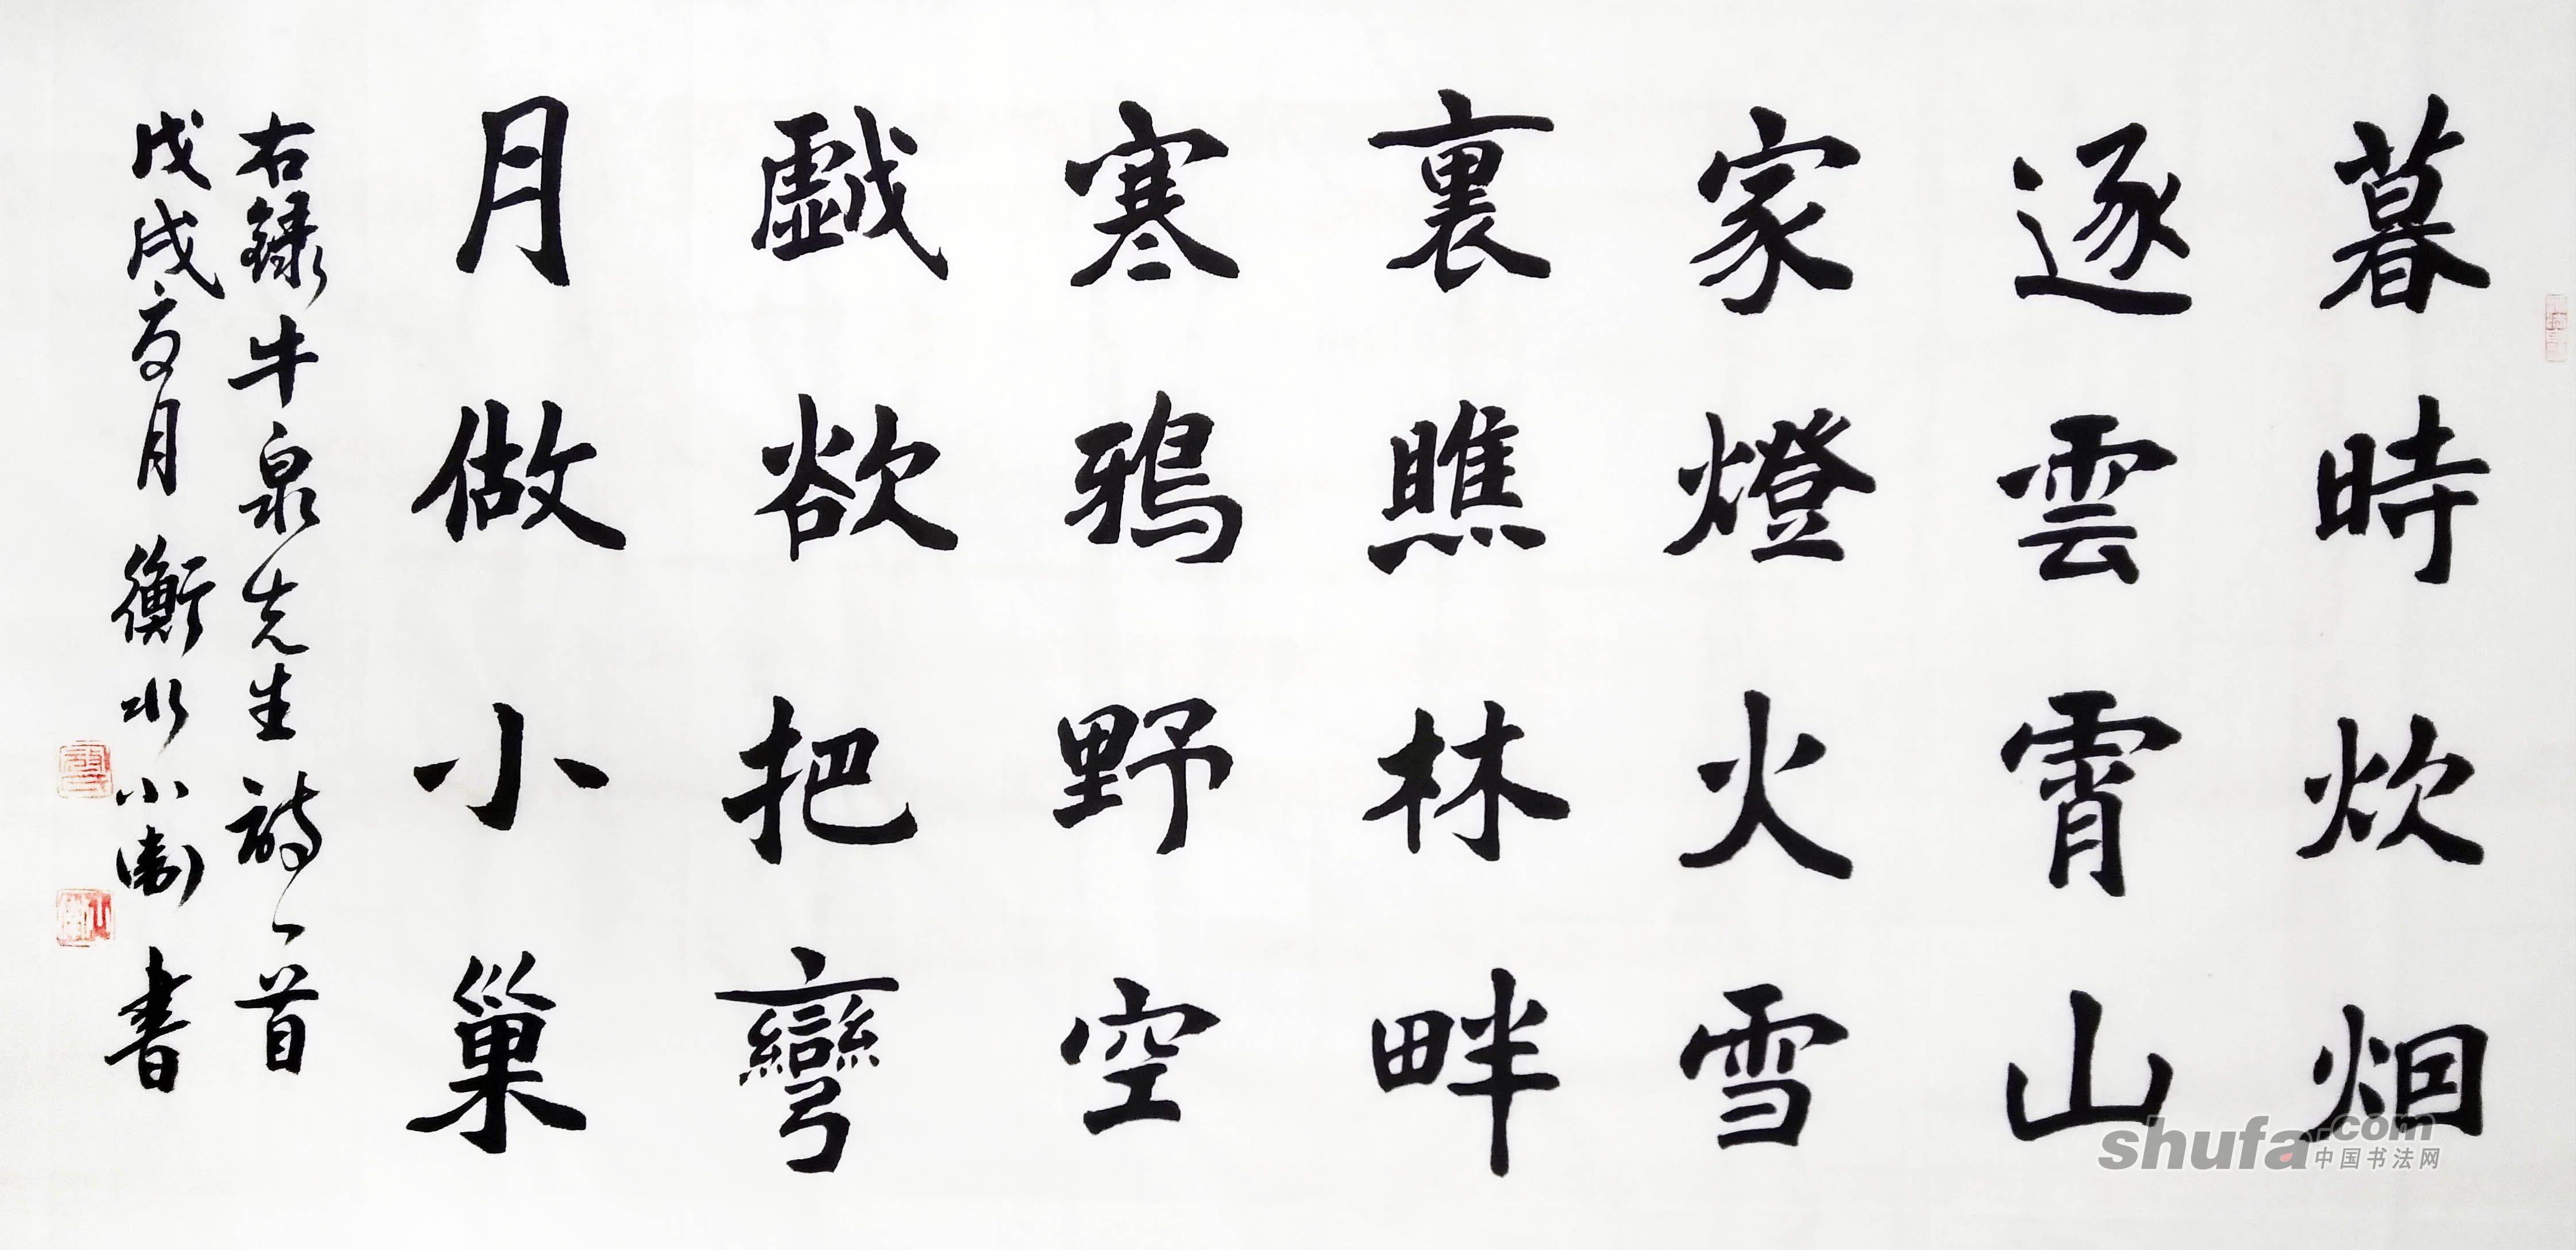 暮時炊烟
逐雲霄山
家燈火雪
裏瞧林畔
寒鴉野空
戯欲把彎
月做小巢
右錄牛泉先生詩一首
戊戌夏月衡水小衛書
shufa.com
中国书法网